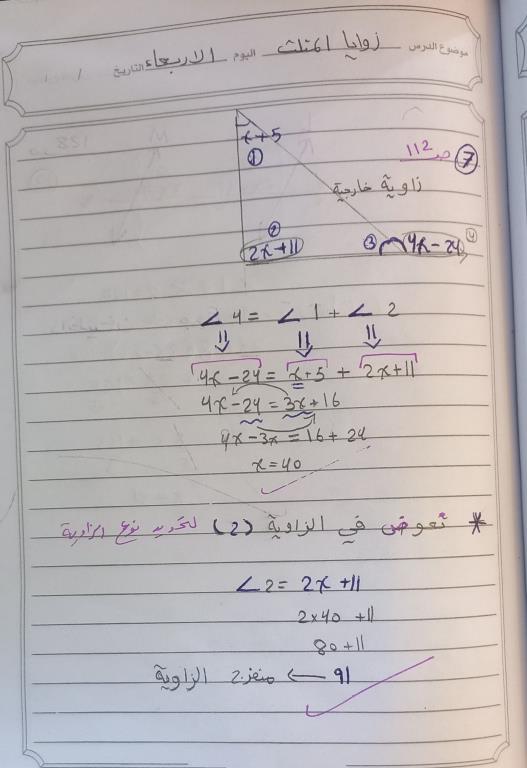 موضوع الدرس زوايا المثلث اليوم الاربعاء التاريخ / /
7 ص 112
x+5
1
زاوية خارجية
2
2x+11
3
4x-24
4
∠4 = ∠1 + ∠2
4x-24 = x+5 + 2x+11
4x-24 = 3x+16
4x-3x = 16+24
x=40
* نعوض في الزاوية (2) لتحديد نوع الزاوية
∠2 = 2x+11
2×40 +11
80+11
91 ← منفرج الزاوية